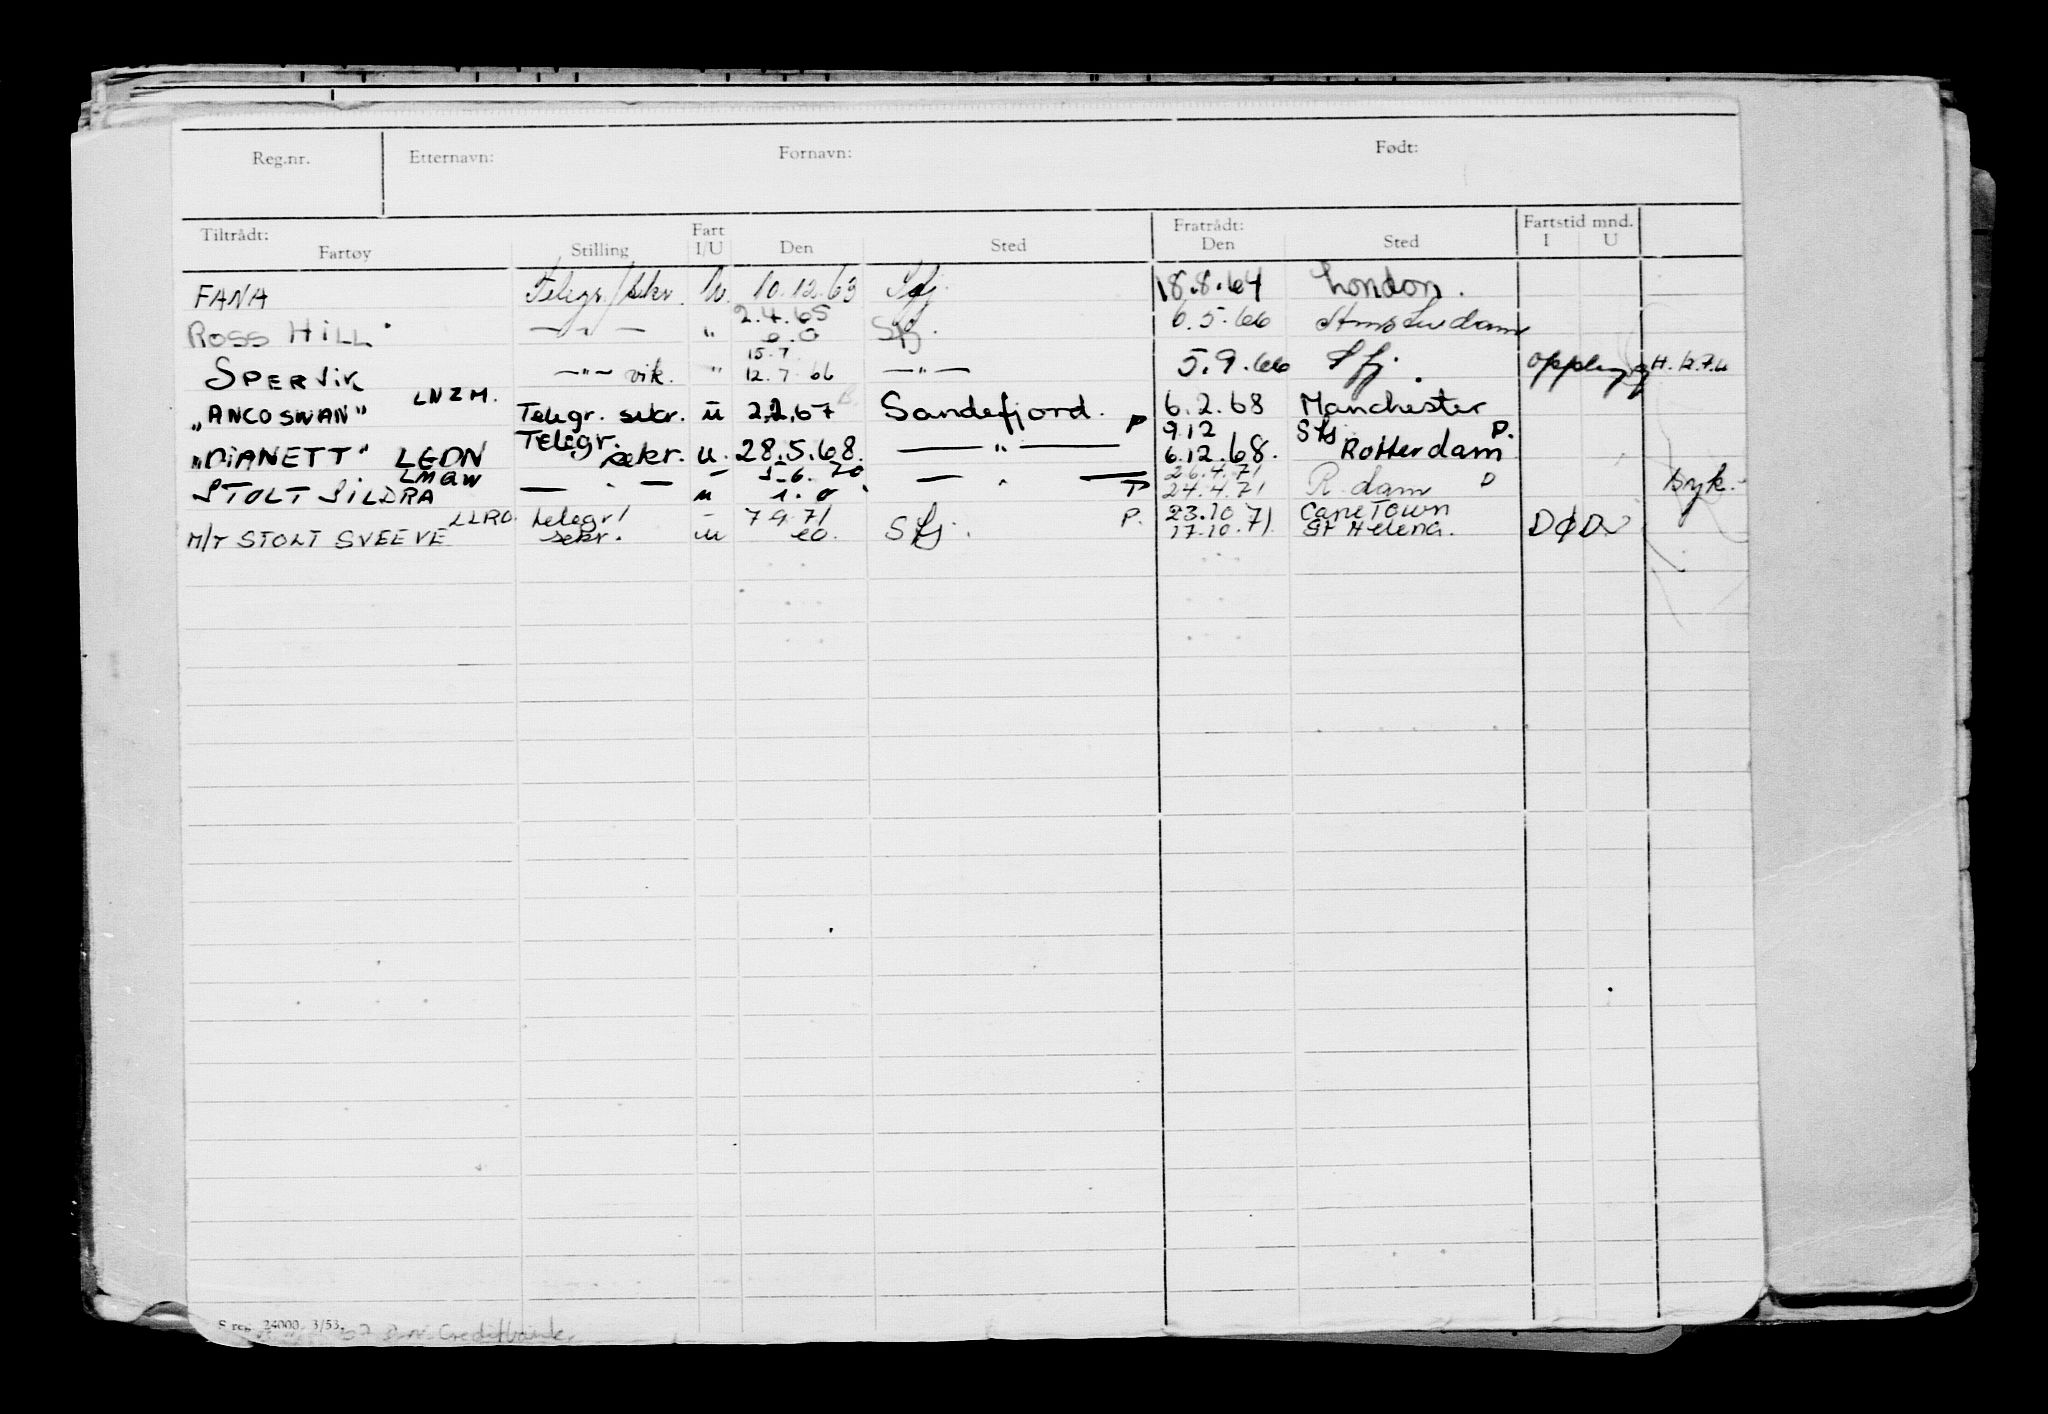 Reg.nr. Etternavn: Fornavn: Født:
Tiltrådt: Fratrådt: Fartstid mnd.
Fartøy Stilling Fart I/U Den Sted Den Sted I U
FANA Telegr./sekr. U. 10.12.63 Sfj. 18.8.64 London.
ROSS HILL —"— " 2.4.65 Sfj. 6.5.66 Amsterdam
SPERVIK —"— vik. " 15.7 12.7 66 —"— 5.9.66 Sfj. H. 12.7.6
„ANCO SWAN" LNZM. Telegr. sekr. u 2.2.67 Sandefjord. P 6.2.68 Manchester P.
„DIANETT" LGDN Telegr. sekr. u. 28.5.68. —"— 9.12 6.12.68. Sfj Rotterdam
STOLT SILDRA LMGW —"— u 5.6.70 —"— P 26.4.71 24.4.71 R.dam syk.
M/T STOLT SVEEVE LLRO. telegr/ sekr. u 7 9 71 Sfj. P. 23.10 71 17.10.71. Cape Town St Helena. DØD
S reg. 24000. 3/53.